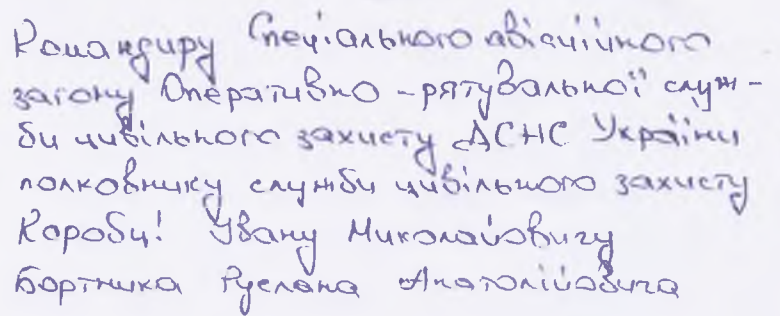 Командиру Спеціального авіаційного
загону Оперативно-рятувальної служ-
би цивільного захисту ДСНС України
полковнику служби цивільного захисту
Коробці Івану Миколайовичу
Бортніка Руслана Анатолійовича